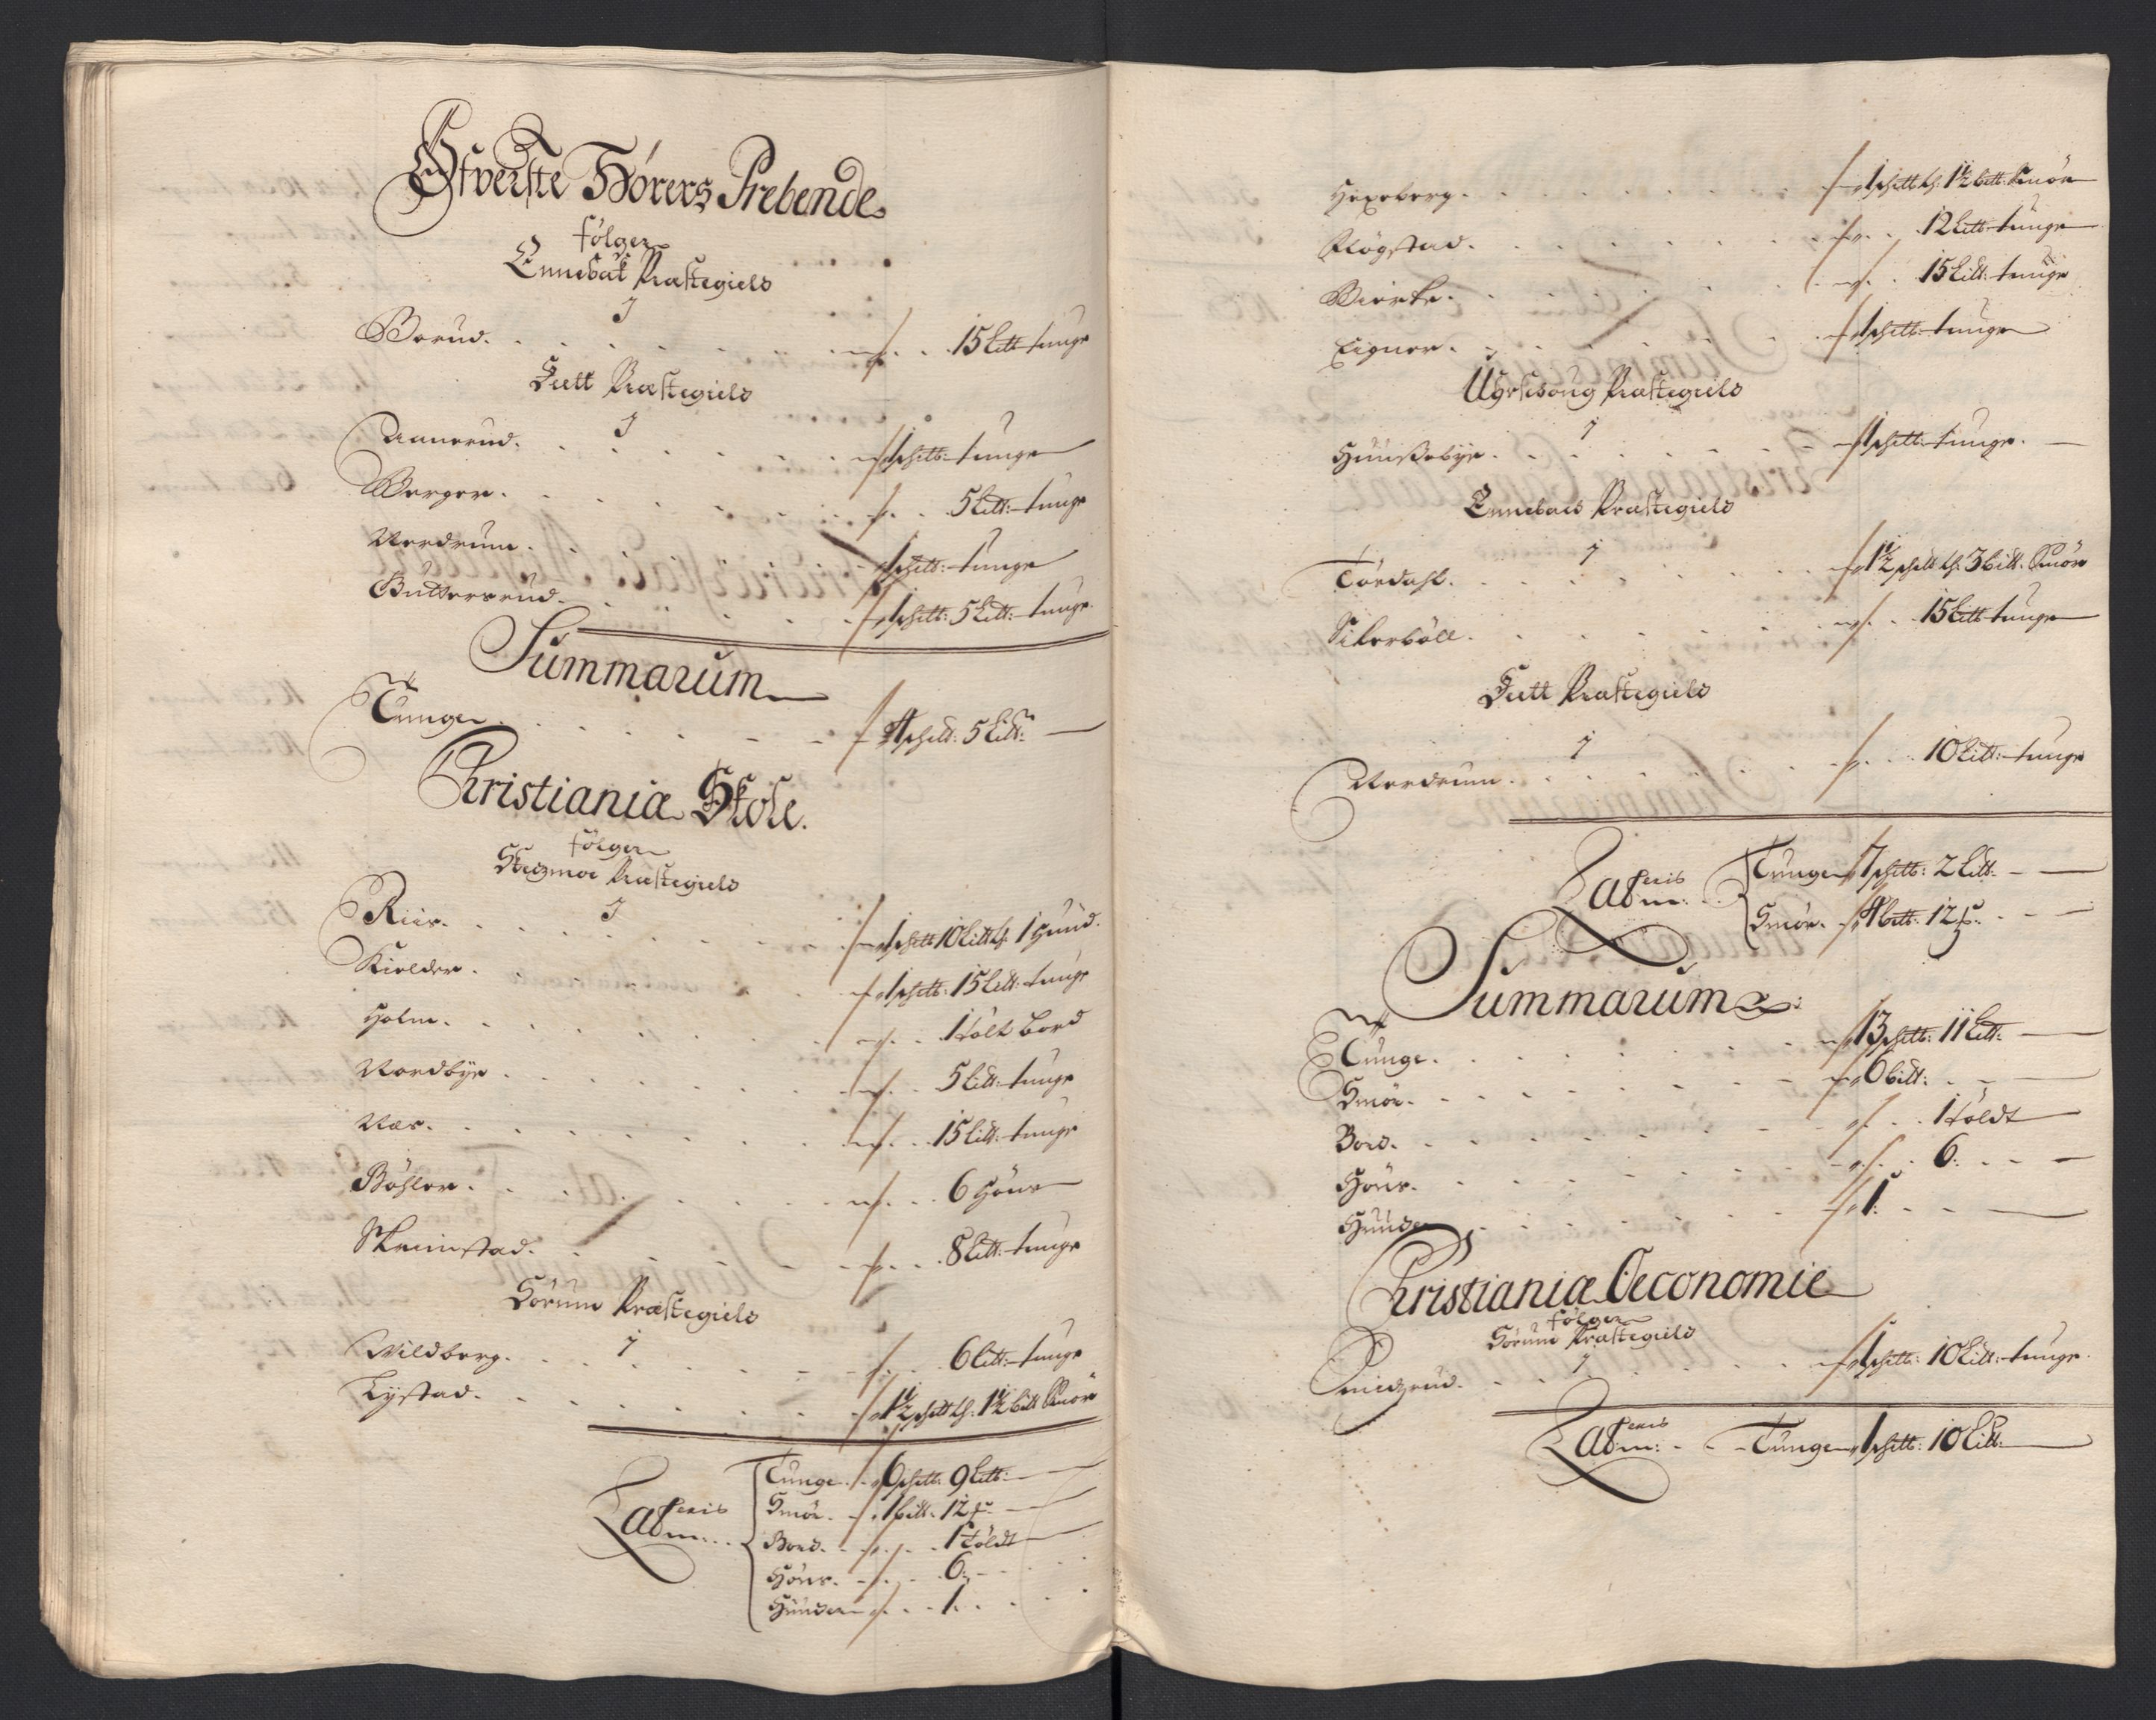 Øfverste Hørers Prebende
følger
Ennebak Præstegield
I
Borud. 15 Litt: tunge
Feett Præstegield
I
Annerud. 1 schtt: tunge
Berger. 5 Litt: tunge
Nordrum. 1 schtt: tunge
Buttersrud. 1 schtt: 5 Litt: tunge
Summarum
Tunge. 4 schtt: 5 Litt:
Christiania Skole.
følger
Skedzmoe Præstegield
I
Riis. 1 schtt 10 Litt och 1 Huud.
Kielder. 1 schtt: 15 Litt: tunge
Holm. 1 tolt Bord
Nordbye. 5 Litt: tunge
Næs. 15 Litt: tunge
Bøhler. 6 Høns
Skrimstad. 8 Litt: tunge
Sørum Præstegield
I
Vildberg. 6 Litt: tunge
Lystad. 1½ schtt och 1½ bitt Smør
Lateris m: Tunge. 6 schtt: 9 Litt:
Smør. 1 bitt: 12 ℔:
Bord. 1 toldt
Høns. 6:
Huuder. 1.
Hexeberg. 1 schtt och 1½ bitt: Smør
Rögstad. 12 Litt: tunge
Bierke. 15 Litt: tunge
Eigner. 1 schtt: tunge
Præstegield
I
Hunssebye. 1 schtt: tunge.
Ennebach Præstegield
I
Tørdahl. 1½ schtt och 3 bitt. Smør
Sikerböll. 15 Litt tunge
Feett Præstegield
I
Nordrum. 10 Litt: tunge
Lateris m: Tunge 7 schtt: 2 Litt:
Smør. 4 bitt: 12 ℔:
Summarum
Tunge. 13 schtt: 11 Litt:
Smør. 6 bitt:
Bord. 1 toldt
Høns. 6:
Huuder 1:
Christiania Oeconomie
følger
Sørum Præstegield
I
1 schtt: 10 Litt: tunge.
Lateris m: Tunge 1 schtt: 10 Litt: